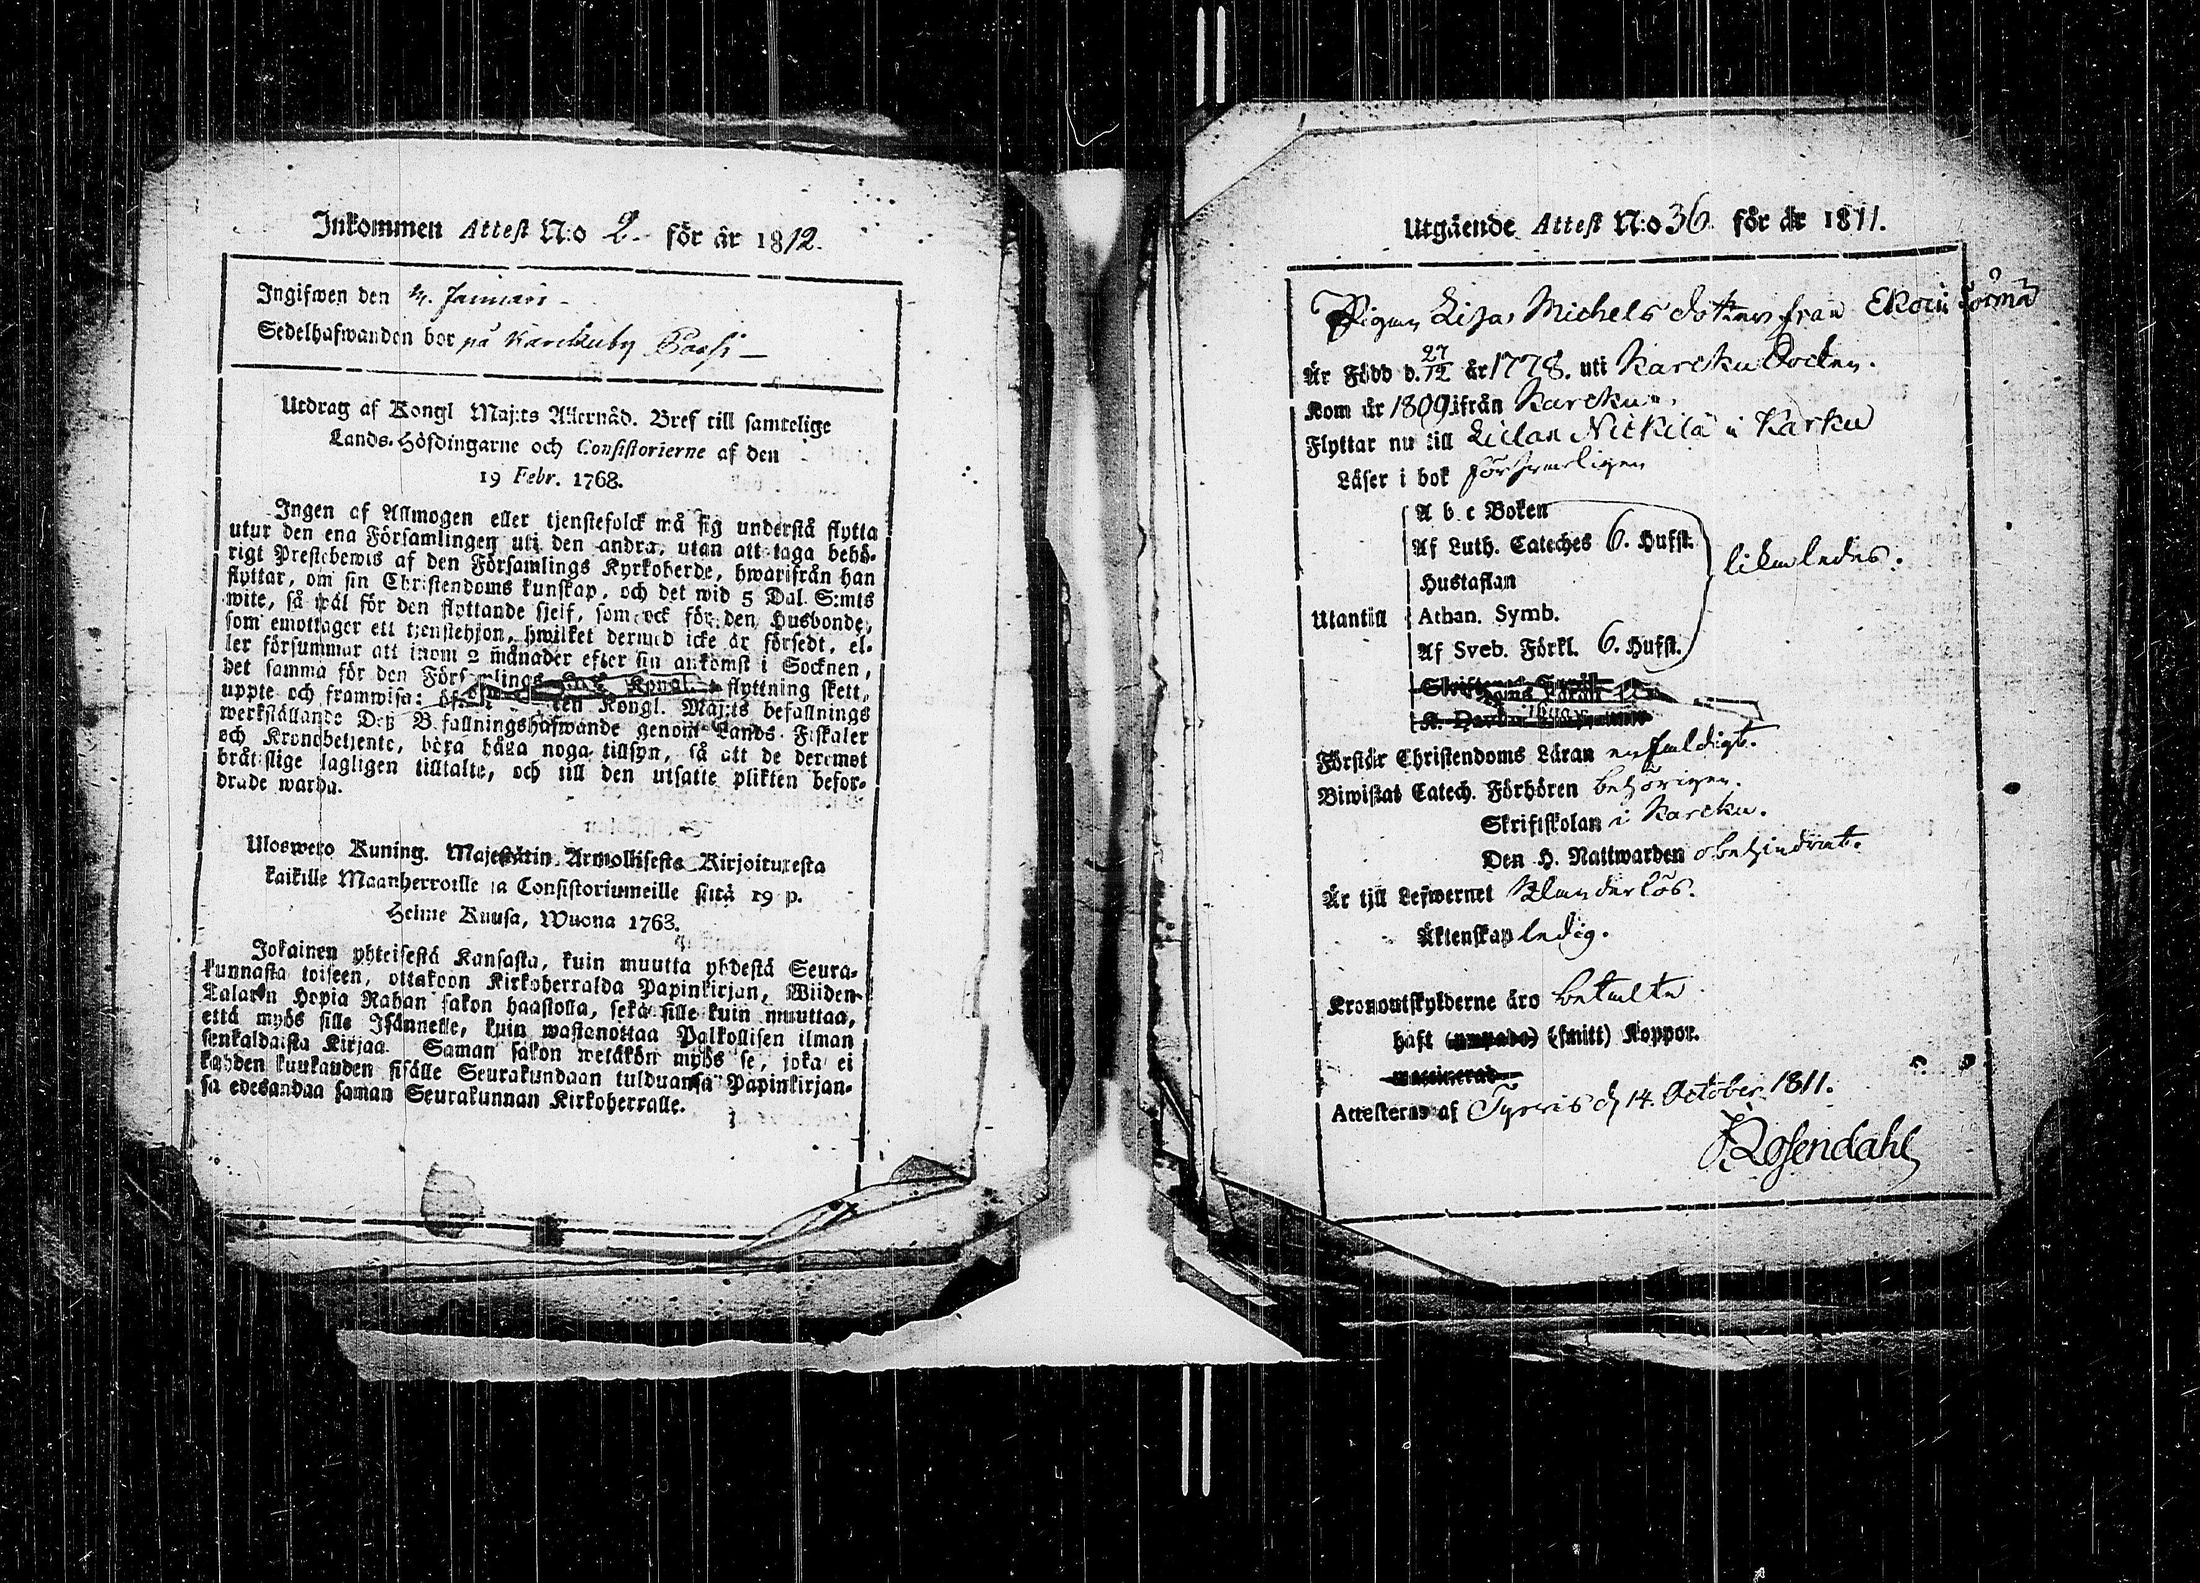 Inkommen Attest N:o 2. för år 1812.
Ingifwen den 4. Januari
Sedelhafwanden bor på Karckuby Passi
Utdrag af Kongl Maj:ts Allernåd. Bref till samtelige
Lands-Höfdingarne och Consistorierne af den
19 Febr. 1768.
Ingen af Allmogen eller tjenstefolck må sig understå flytta
utur den ena Församlingen uti den andra, utan att taga behö-
rigt Prestebewis af den Församlings Kyrkoherde, hwarifrån han
flyttar, om sin Christendoms kunskap, och det wid 5 Dal. S:mts
wite, så wäl för den flyttande sjelf, som ock för den Husbonde,
som emottager ett tjenstehjon, hwilket dermed icke är försedt, el-
ler försummar att inom 2 månader efter sin ankomst i Socknen,
det samma för den Församlings flyttning skett,
uppte och framwisa: Kongl. Maj:ts befallnings
werkställande Deß Befallningshafwande genom Lands-Fiskaler
och Kronobetjente, böra båga noga tillsyn, så att de deremot
bråtslige lagligen tilltalte, och till den utsatte plikten befor-
drade warda.
Uloswето Kuning. Majestätin Armollisesta Kirjoituxesta
kaikille Maanherroille ja Consistoriumeille siitä 19 p.
Helme Kuusa, Wuona 1763.
Jokainen yhteisestä Kansasta, kuin muutta yhdestä Seura-
kunnasta toiseen, ottakoon Kirkoherralda Papinkirjan, Wiiden
Talarin Hopia Rahan sakon haastolla, sekä sille kuin muuttaa,
että myös sille Isännelle, kuin wastanottaa Palkollisen ilman
senkaldaista Kirjaa. Saman sakon wetäkön myös se, joka ei
kahden kuukauden sisälle Seurakundaan tulduansa Papinkirjan-
sa edesandaa saman Seurakunnan Kirkoherralle.
Utgående Attest N:o 36. för år 1811.
Pigan Lisa Michels dotter från Ekoin Sorma
Är Född d. 27/12 år 1778. uti Karcku Socken.
Kom år 1809 ifrån Karcku
Flyttar nu till Lielan Nickilä i Karku
Läser i bok försvarligen
A b c Boken
Af Luth. Cateches 6. Hufst.
Hustaflan
likaledes.
Utantill Athan. Symb.
Af Sveb. Förkl. 6. Hufst.
Förstår Christendoms Läran enfaldigt.
Biwistat Catech. Förhören behörigen.
Skriftskolan i Karcku.
Den H. Nattwarden obehindrat.
Är till Lefwernet Klanderlös.
Äktenskap ledig.
Kronoutskylderne äro betalte
haft (smitt) Koppor.
Attesteras af Tyrvis d. 14. October 1811.
Rosendahl